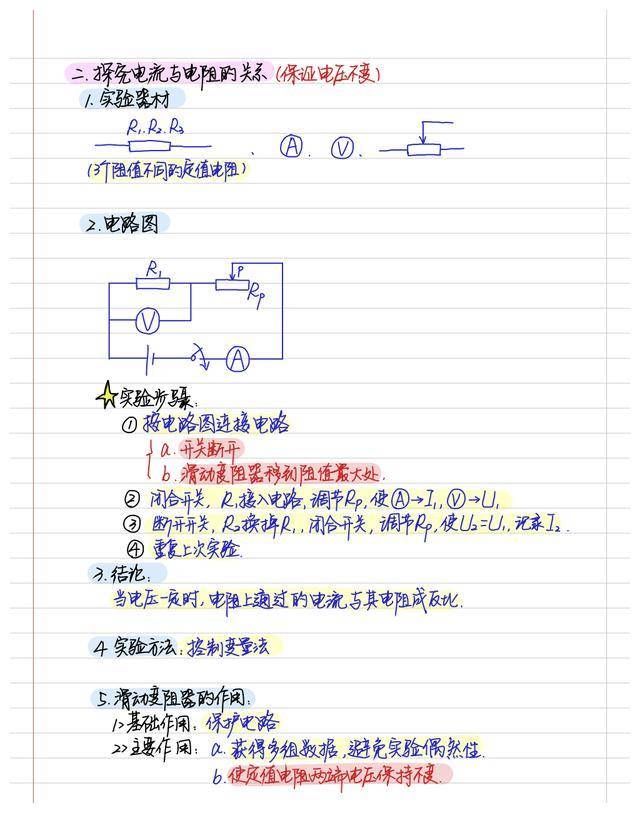 二.探究电流与电阻的关系(保证电压不变)
1.实验器材
R₁.R₂.R₃
A. V.
(3个阻值不同的定值电阻)
2.电路图
R₁ P
Rp
V
A
实验步骤:
① 按电路图连接电路
a.开关断开
b.滑动变阻器移到阻值最大处.
② 闭合开关, R₁接入电路,调节Rp,使Ⓐ→I₁,Ⓥ→U₁
③ 断开开关, R₂换掉R₁,闭合开关,调节Rp,使U₂=U₁,记录I₂.
④ 重复上次实验.
3.结论:
当电压一定时,电阻上通过的电流与其电阻成反比.
4 实验方法:控制变量法
5.滑动变阻器的作用:
1>基础作用:保护电路
2>主要作用: a.获得多组数据,避免实验偶然性.
b.使定值电阻两端电压保持不变.